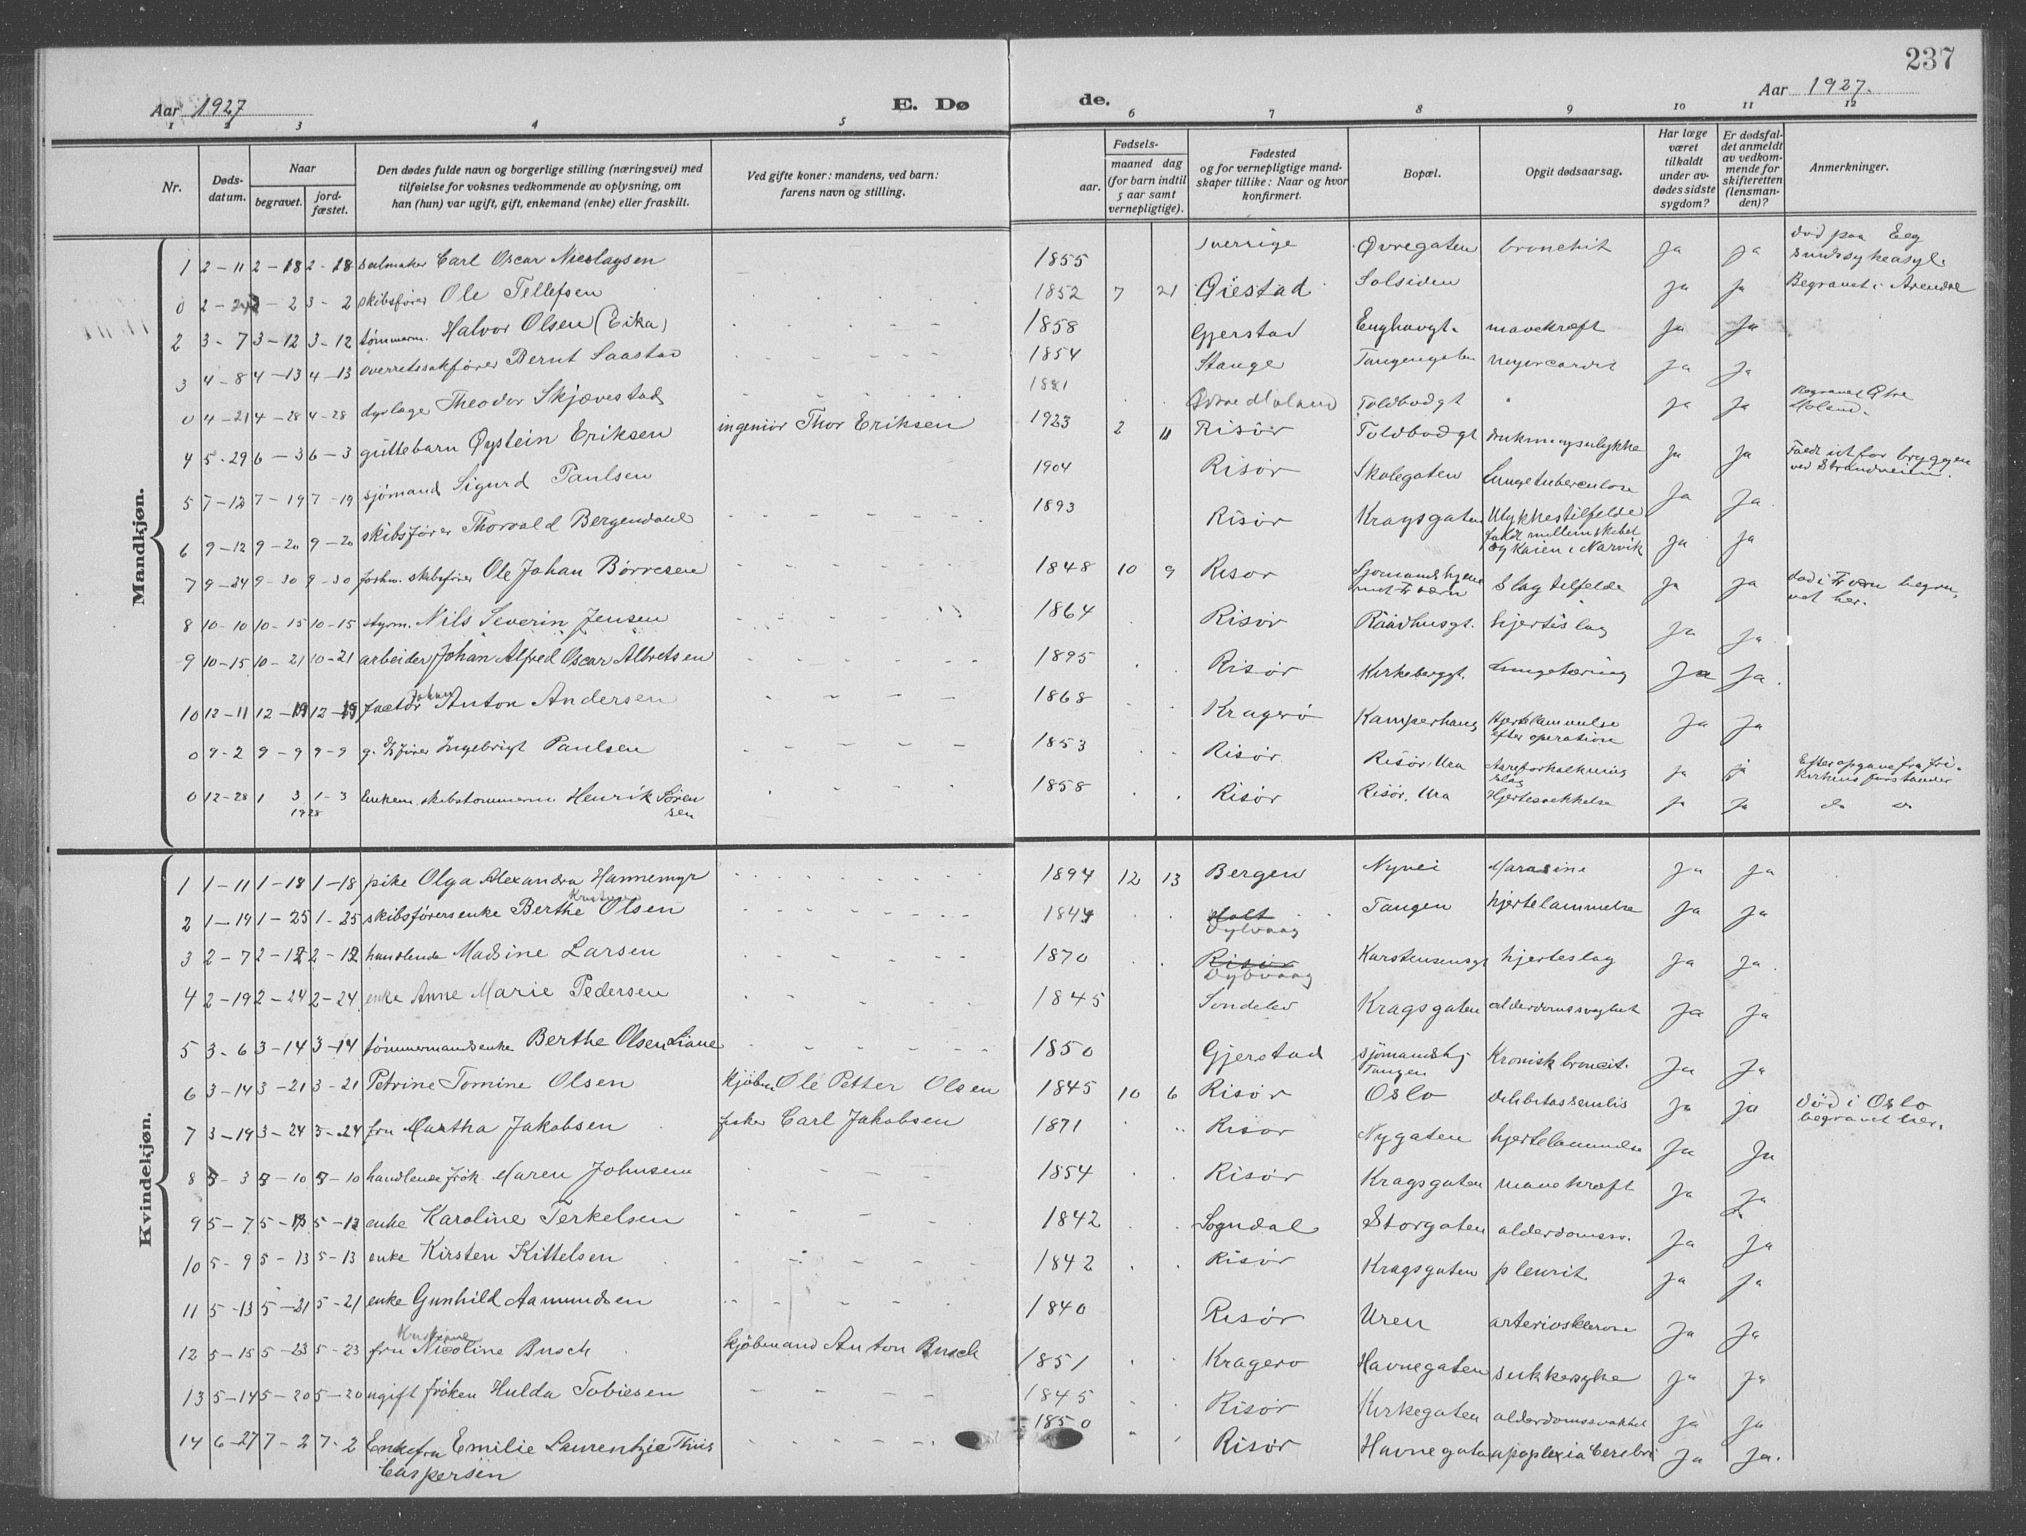 237
Aar 1927
E. Dø
de.
Aar 1927.
1 2 3 4 5 6 7 8 9 10 11 12
Nr.
Døds-
datum.
Naar
begravet.
jord-
fæstet.
Den dødes fulde navn og borgerlige stilling (næringsvei) med
tilføielse for voksnes vedkommende av oplysning, om
han (hun) var ugift, gift, enkemand (enke) eller fraskilt.
Ved gifte koner: mandens, ved barn:
farens navn og stilling.
Fødsels-
aar.
maaned dag
(for barn indtil
5 aar samt
vernepligtige).
Fødested
og for vernepligtige mand-
skaper tillike: Naar og hvor
konfirmert.
Bopæl.
Opgit dødsaarsag.
Har læge
været
tilkaldt
under av-
dødes sidste
sygdom?
Er dødsfal-
det anmeldt
av vedkom-
mende for
skifteretten
(lensman-
den)?
Anmerkninger.
Mandkjøn.
1 2-11 2-18 2-18 seilmaker Carl Oscar Nicolaysen 1855 Sverrige Øvregaten bronchit Ja Ja død paa Eeg sindssykeasyl.
0 2-2 3-2 skibsfører Ole Tellefsen 1852 7 21 Øiestad Solsiden Ja Ja Begravet i Arendal
2 3-7 3-12 3-12 tømmerm. Halvor Olsen (Eika) 1858 Gjerstad Enghavgt. mavekræft Ja Ja
3 4-8 4-13 4-13 overretssakfører Bernt Saastad 1854 Stange Tangengaten myocardit Ja Ja
0 4-21 4-28 4-28 dyrlæge Theodor Skjævestad 1881 Østre Moland Toldbodgt Ja Ja Begravet Østre Moland.
4 5-29 6-3 6-3 guttebarn Øystein Eriksen ingeniør Thor Eriksen 1923 2 11 Risør Toldbodgt drukningsulykke Ja Ja Faldt ut for bryggen ved Strandveien.
5 7-12 7-19 7-19 sjømand Sigurd Paulsen 1904 Risør Skolegaten Lungetuberculose Ja Ja.
6 9-12 9-20 9-20 skibsfører Thorvald Bergendahl 1893 Risør Kragsgaten Ulykkestilfelde faldt mellem skibet og kaien i Narvik Ja Ja
7 9-24 9-30 9-30 forhv. skibsfører Ole Johan Børresen 1848 10 9 Risør Sjømandshjem Slagtilfelde Ja Ja død i begravet her.
8 10-10 10-15 10-15 styrm. Nils Severin Jensen 1864 Risør Raadhusgt. hjerteslag Ja Ja.
9 10-15 10-21 10-21 arbeider Johan Alfred Oscar Albretsen 1895 Risør Kirkeberggt. Lungetæring Ja Ja.
10 12-11 12-19 12-19 factor Johan Anton Andersen 1868 Kragerø Kamperhaug Hjertelammelse efter operation Ja Ja
0 9-2 9-9 9-9 g. D/S fører Ingebrigt Paulsen 1853 Risør Risør, Ura Aareforkalkning slag Ja ja Efter opgave fra frikirkens forstander
0 12-28 1 3 1-3 1928 Enkem. skibstømmerm. Henrik Sørensen 1858 Risør Risør, Ura Hjertesvekkelse Ja Ja do do
Kvindekjøn.
1 1-11 1-18 1-18 pike Olga Alexandra Hannemyr 1894 12 13 Bergen Nyvei Marasme Ja Ja
2 1-19 1-25 1-25 skibsførersenke Berthe Olsen 1844 Holt Dybvaag Tangen hjertelammelse Ja Ja
3 2-7 2-12 2-12 handlende Madsine Larsen 1870 Risør Dybvaag Karstensensgt hjerteslag Ja Ja.
4 2-19 2-24 2-24 enke Anne Marie Pedersen 1845 Søndeled Kragsgaten alderdomssvaghet Ja Ja
5 3-6 3-14 3-14 tømmermandsenke Berthe Olsen Liane 1850 Gjerstad sjømandshj Tangen Kronisk broncit. Ja Ja
6 3-14 3-21 3-21 Petrine Tomine Olsen kjøbm Ole Petter Olsen 1845 10 6 Risør Oslo debilitas senilis Ja ja død i Oslo begravet her.
7 3-19 3-24 3-24 fru Martha Jakobsen fisker Carl Jakobsen 1871 Risør Nygaten hjertelammelse Ja Ja
8 5-3 5-10 5-10 handlende frøk. Maren Johnsen 1854 Risør Kragsgaten mavekræft Ja Ja
9 5-7 5-13 5-13 enke Karoline Terkelsen 1842 Sogndal Storgaten alderdomssv. Ja Ja
10 5-9 5-13 5-13 enke Kirsten Kittelsen 1842 Risør Kragsgaten pleurit Ja Ja
11 5-13 5-21 5-21 enke Gunhild Aamundsen 1840 Risør Uren arteriosklerose Ja Ja
12 5-15 5-23 5-23 fru Kristiane Nicoline Busch kjøbmand Anton Busch 1851 Kragerø Havnegaten sukkersyke Ja Ja
13 5-14 5-20 5-20 ugift frøken Hulda Tobiesen 1845 Risør Kirkegaten alderdomssvakhet Ja Ja
14 6-27 7-2 7-2 Enkefru Emilie Laurentzie Thiis Caspersen 1850 Risør Havnegaten apoplexia cerebri Ja Ja.